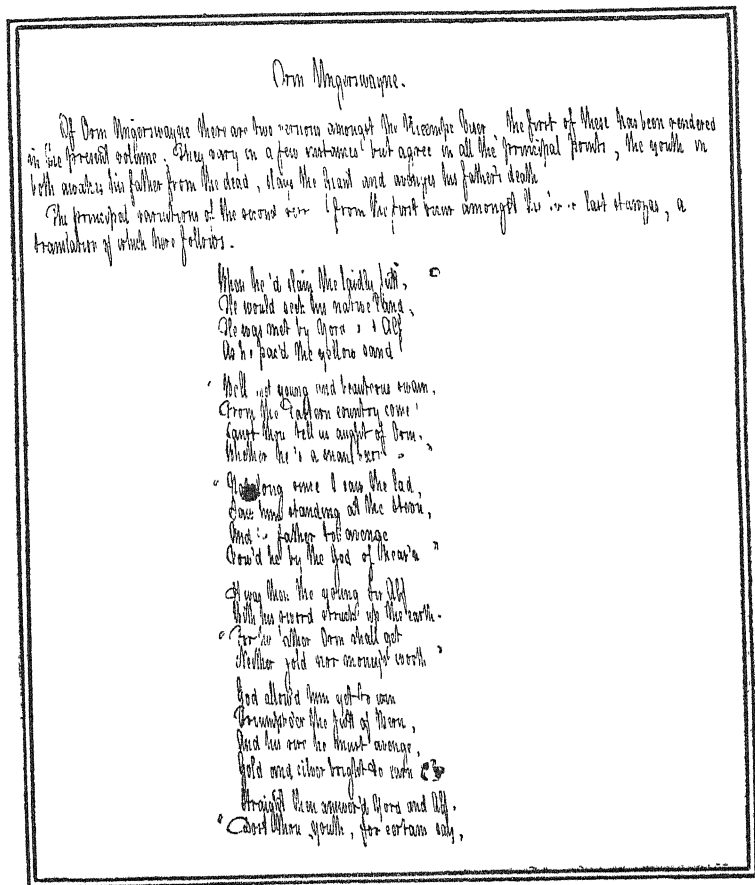 Orm Ungerswayne.
Of Orm Ungerswayne there are two versions amongst the Kiæmpe Viser, the first of these has been rendered
in the present volume. They vary in a few instances but agree in all the principal points, the youth in
both awakes his father from the dead, slays the giant and avenges his father's death
The principal variations of the second from the first occur amongst the last stanzas, a
translation of which here follows.
When he'd slain the laidly Jutt,
He would seek his native land,
He was met by Gord Alf
As he pac'd the yellow sand
" Well met young and beauteous swain,
From the Eastern country come!
Canst thou tell us aught of Orm,
Whether he's a man "
" Not long since I saw the lad,
Saw him standing at the steven,
And his father to avenge
Vow'd he by the God of Heav'n "
It was then the young Sir Alf
With his sword struck up the earth.
" For his father Orm shall get
Neither gold nor money's worth "
God allow'd him yet to win
Triumph o'er the Jutt of Bern,
And his sire he must avenge,
Gold and silver bright to earn
Straight then answer'd Gord and Alf.
" Canst thou, youth, for certain say,